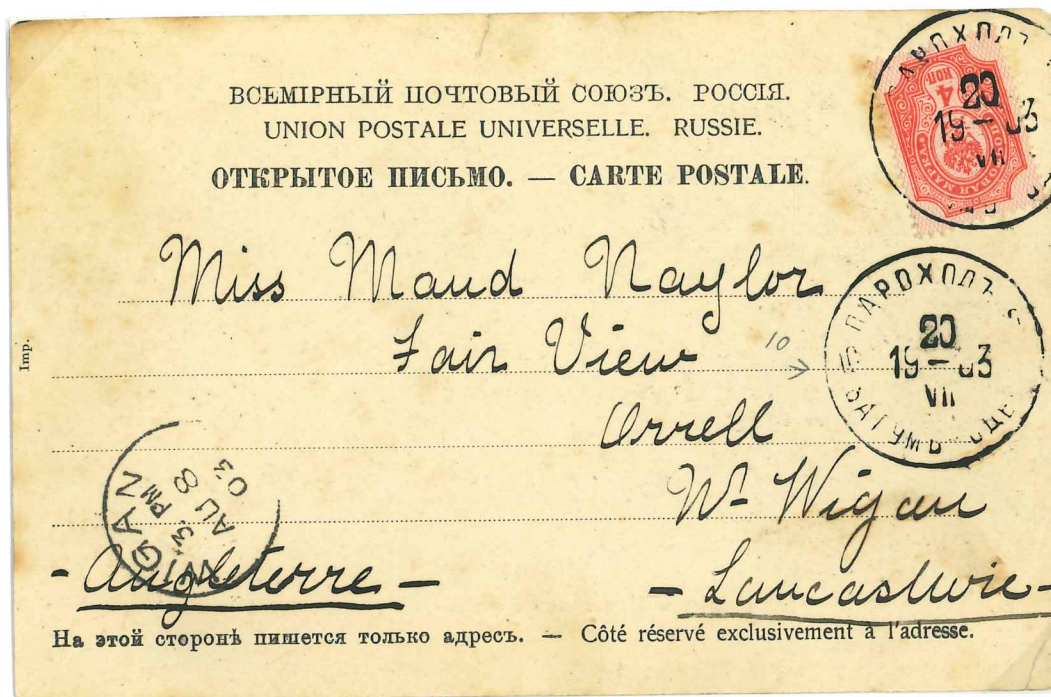 ВСЕМІРНЫЙ ПОЧТОВЫЙ СОЮЗЪ. РОССІЯ.
UNION POSTALE UNIVERSELLE. RUSSIE.
ОТКРЫТОЕ ПИСЬМО. — CARTE POSTALE.
4
КОП
20
19 — 03
VII
Miss Maud Naylor
Fair View
Orrell
Nr Wigan
- Lancashire -
- Angleterre -
10
ПАРОХОДЪ
20
19 — 03
VII
БАТУМЪ
WIGAN
3 PM
AU 8
03
Imp.
На этой сторонѣ пишется только адресъ. — Côté réservé exclusivement à l'adresse.